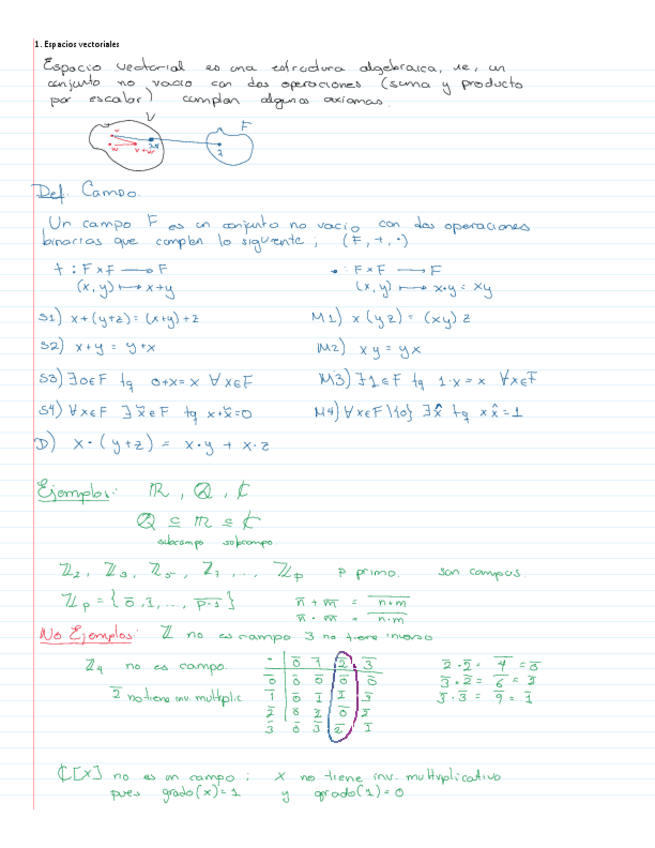 1. Espacios vectoriales
Espacio vectorial es una estructura algebraica, ie, un
conjunto no vacio con dos operaciones (suma y producto
por escalar) cumplen algunos axiomas.
V F
v λv
w v+w λ
Def. Campo.
Un campo F es un conjunto no vacio con dos operaciones
binarias que complen lo siguiente; (F, +, ·)
+ : F×F → F · : F×F → F
(x, y) ↦ x+y (x, y) ↦ x·y = xy
S1) x+(y+z) = (x+y)+z M1) x(yz) = (xy)z
S2) x+y = y+x M2) xy = yx
S3) ∃0∈F tq 0+x=x ∀x∈F M3) ∃1∈F tq 1·x=x ∀x∈F
S4) ∀x∈F ∃x̃∈F tq x+x̃=0 M4) ∀x∈F\{0} ∃x̂ tq x x̂=1
D) x·(y+z) = x·y + x·z
Ejemplos: ℝ, ℚ, ℂ
ℚ ⊆ ℝ ⊆ ℂ
subcampo subcampo
ℤ₂, ℤ₃, ℤ₅, ℤ₇, ..., ℤp p primo. son campos.
ℤp = {0̄, 1̄, ..., p-1} n̄ + m̄ = n+m
n̄ · m̄ = n·m
No Ejemplos: ℤ no es campo 3 no tiene inverso
ℤ₄ no es campo.
2̄ no tiene inv. multiplic
· 0̄ 1̄ 2̄ 3̄
0̄ 0̄ 0̄ 0̄ 0̄
1̄ 0̄ 1̄ 2̄ 3̄
2̄ 0̄ 2̄ 0̄ 2̄
3̄ 0̄ 3̄ 2̄ 1̄
2̄·2̄ = 4̄ = 0̄
3̄·2̄ = 6̄ = 2̄
3̄·3̄ = 9̄ = 1̄
ℂ[x] no es un campo; x no tiene inv. multiplicativo
pues grado(x)=1 y grado(1)=0